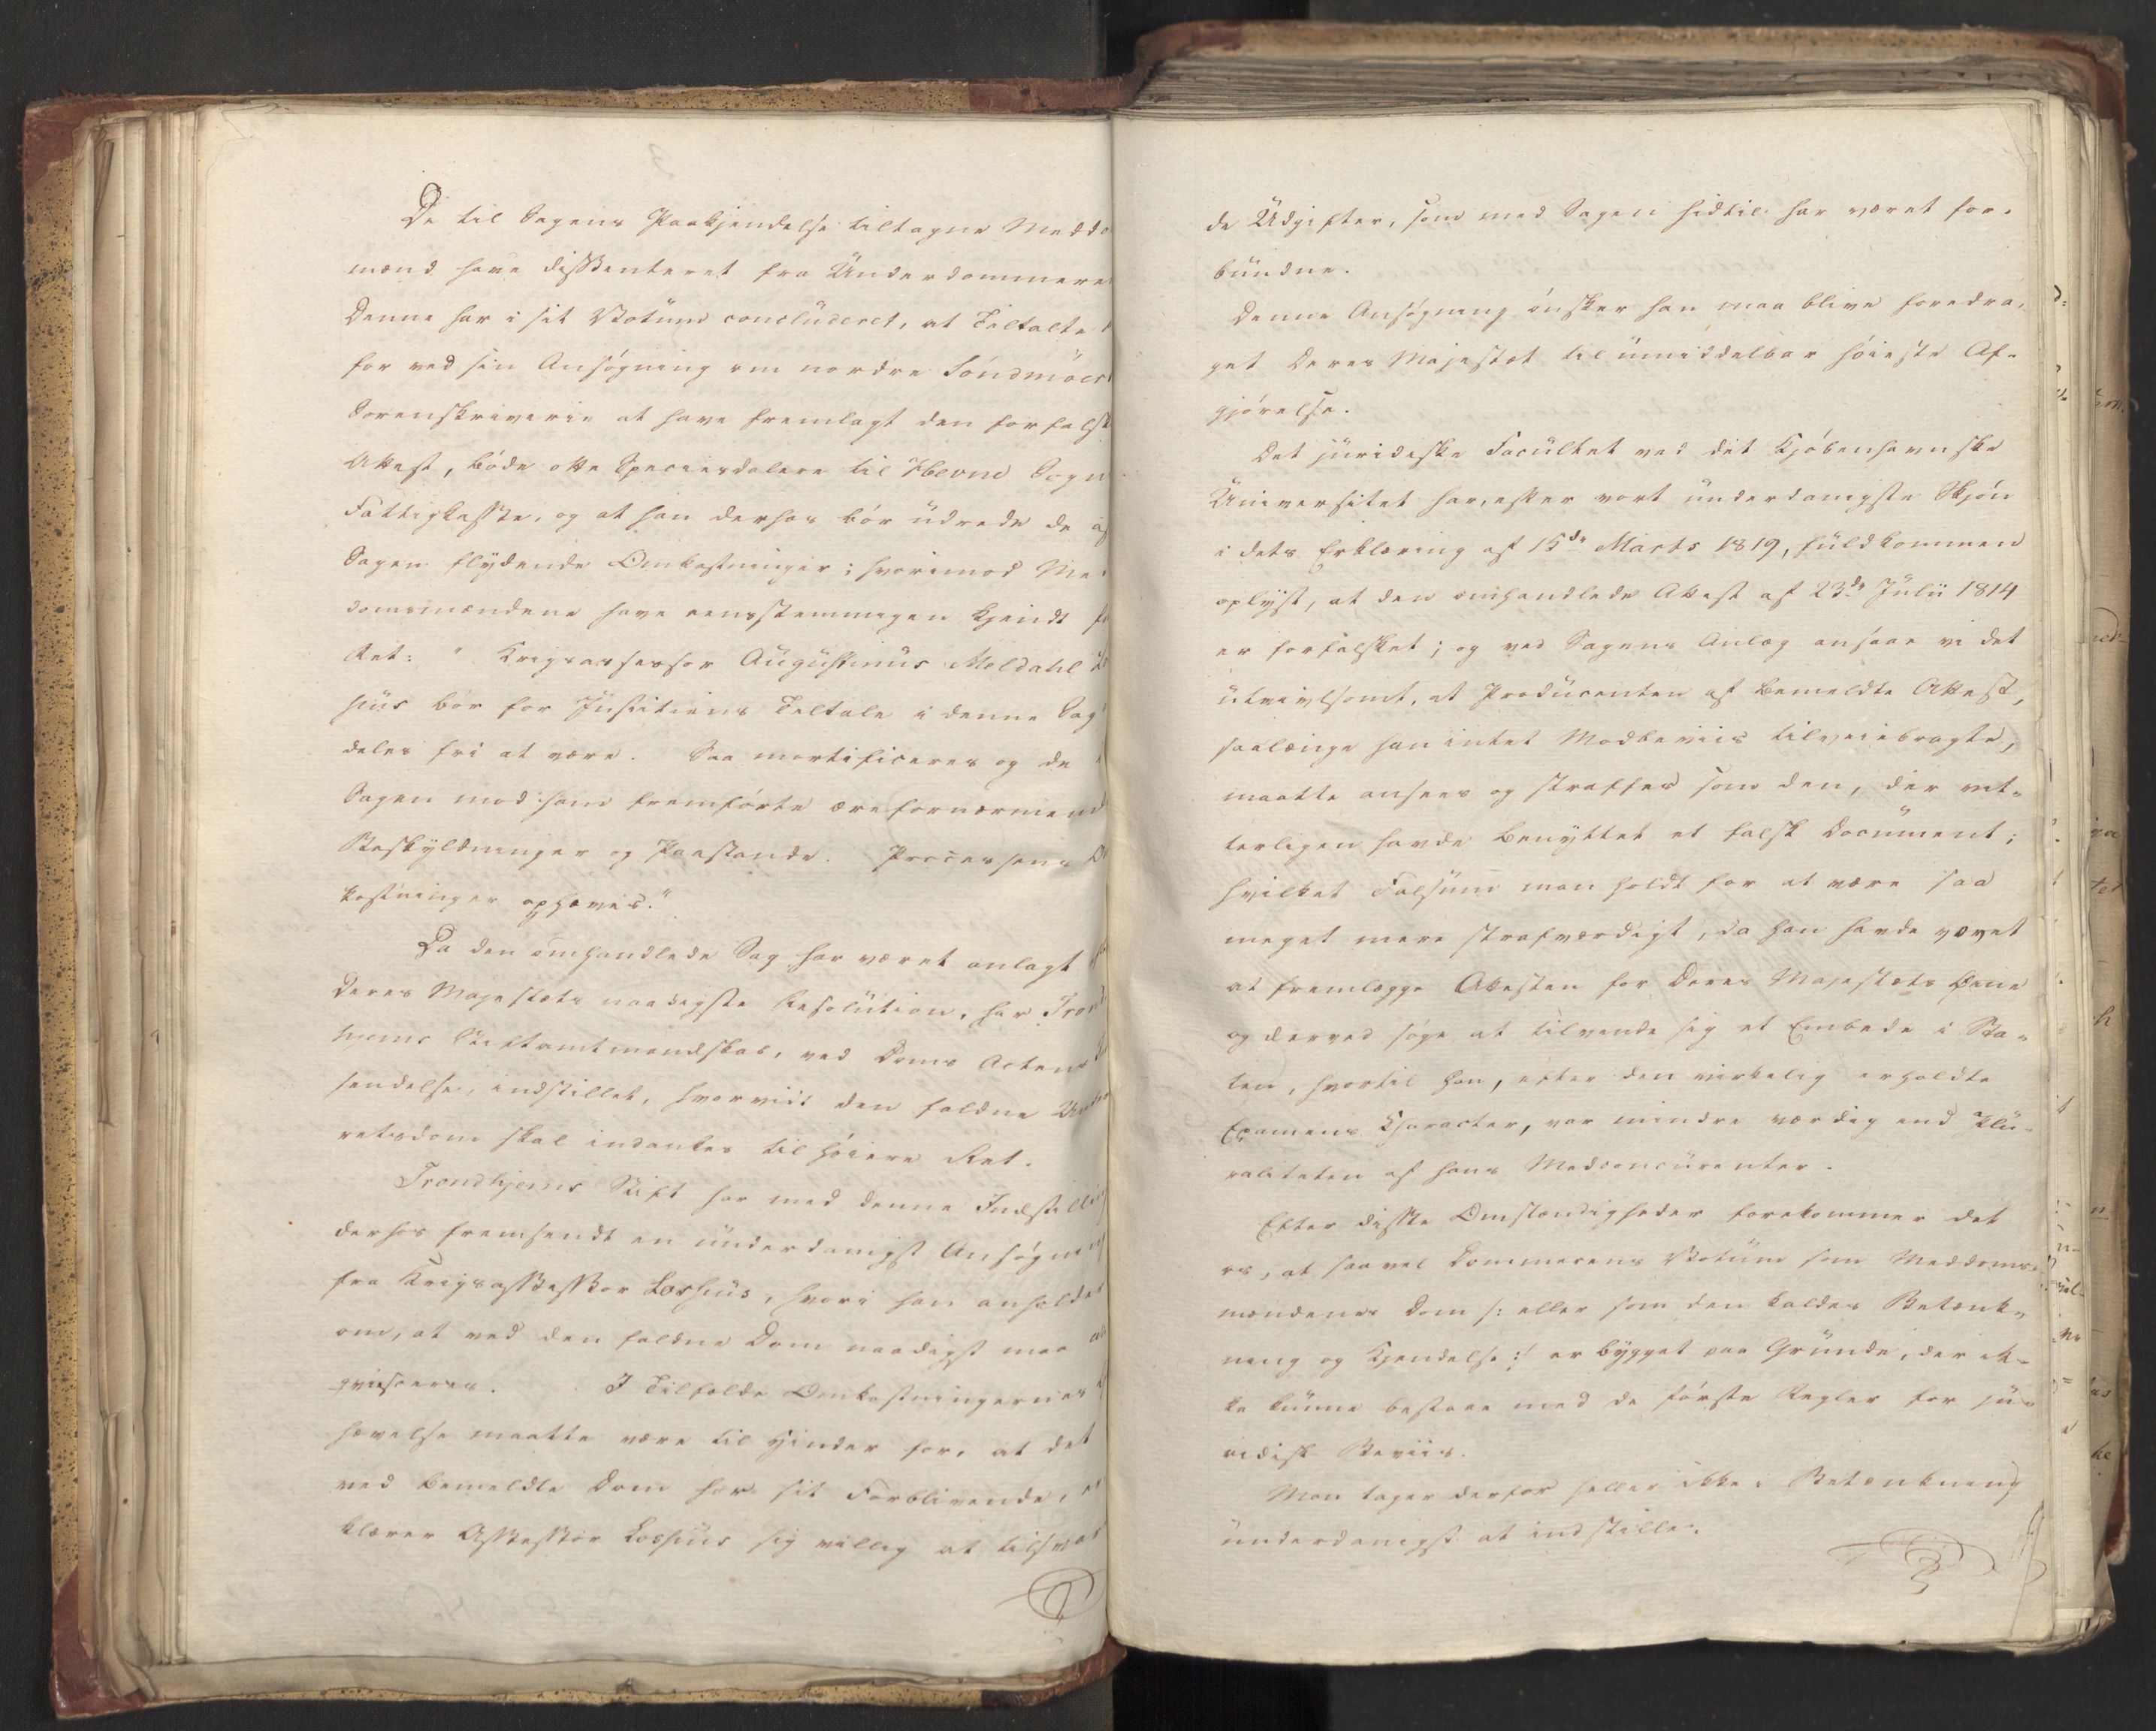 De til Sagens Paakjendelse tiltagne Meddo
mænd have dissenteret fra Underdommere
Denne har i sit Votum concluderet, at Tiltalte
for ved sin Ansøgning om nordre Søndmørs
Sorenskriverie at have fremlagt den forfalsk
Attest, bøde otte Speciesdalere til Hevne Sogn
Fattigkasse, og at han derhos bør udrede de af
Sagen flydende Omkostninger; hvorimod Me
domsmændene have eensstemmigen kjendt for
Ret: "Krigsassessor Augustinus Meldahl Lo
hus bør for Justitiens Tiltale i denne Sag
deles fri at være. Saa mortificeres og de
Sagen mod ham fremførte ærefornærmend
Beskyldninger og Paastande. Processens Om
kostninger ophæves."
Da den omhandlede Sag har været anlagt
Deres Majestæts naadigste Resolution, har Trond
hjems Stiftamtmandskab, ved Doms Actens
sendelse, indstillet, hvorvidt den faldne Under
retsdom skal indankes til høiere Ret.
Trondhjems Stift har med denne Indstilling
derhos fremsendt en underdanigst Ansøgning
fra Krigsassessor Lorhus, hvori han anholder
om, at ved den faldne Dom naadigst maa
qviesceres. I Tilfælde Omkostningernes
hævelse maatte være til Hinder for, at det
ved bemeldte Dom har sit Forblivende, er
klærer Assessor Lorhus sig villig at tilsvar
de Udgifter, som med Sagen hidtil har været for-
bundne.
Denne Ansøgning ønsker han maa blive foredra-
get Deres Majestæt til umiddelbar høieste Af-
gjørelse.
Det juridiske Facultet ved det Kjøbenhavnske
Universitet har, efter vort underdanigste Skjøn
i dets Erklæring af 15de Marts 1819, fuldkommen
oplyst, at den omhandlede Attest af 23de Julii 1814
er forfalsket; og ved Sagens Anlæg ansaae vi det
utvivlsomt, at Producenten af bemeldte Attest,
saalænge han intet Modbeviis tilveiebragte,
maatte ansees og straffes som den, der vit-
terligen havde benyttet et falsk Document;
hvilket Falsum man holdt for at være saa
meget mere strafværdigt, da han havde vovet
at fremlægge Attesten for Deres Majestæts Øine
og derved søge at tilvende sig et Embede i Sta-
ten, hvortil han, efter den virkelig erholdte
Examens Character, var mindre værdig end Plu-
raliteten af hans Medconcurenter.
Efter disse Omstændigheder forekommer det
os, at saavel Dommerens Votum som Meddoms-
mændenes Dom /: eller som den kaldes Betænk-
ning og Kjendelse :/ er bygget paa Grunde, der ik-
ke kunne bestaae med de første Regler for ju-
ridisk Beviis.
Man tager derfor heller ikke i Betænkning
underdanigst at indstille: